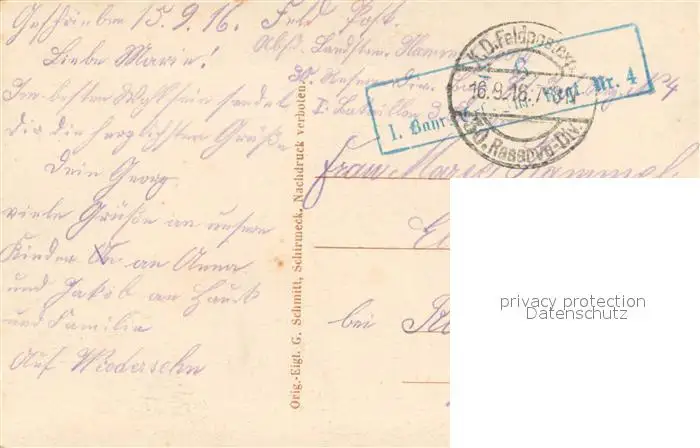 Geschrieben 15.9.16. Feld Post.
Liebe Marie!
Im besten Wohlsein sendet
dir die herzlichsten Grüße
Dein Georg
viele Grüße an unsere
Kinder an Anna
und Jakob an Hauck
und Familie
Auf Wiedersehn
Orig.-Eigl. G. Schmitt, Schirmeck. Nachdruck verboten.
Absd. Landstm. Hammel
30. Reserve Div. Bay. Nr 4
I. Bataillon 3.
K.D.Feldpostexp.
16.9.16.7-8N
30. Reserve-Div.
I. Bayr. Nr. 4
Frau Marie Hammel
bei
privacy protection
Datenschutz